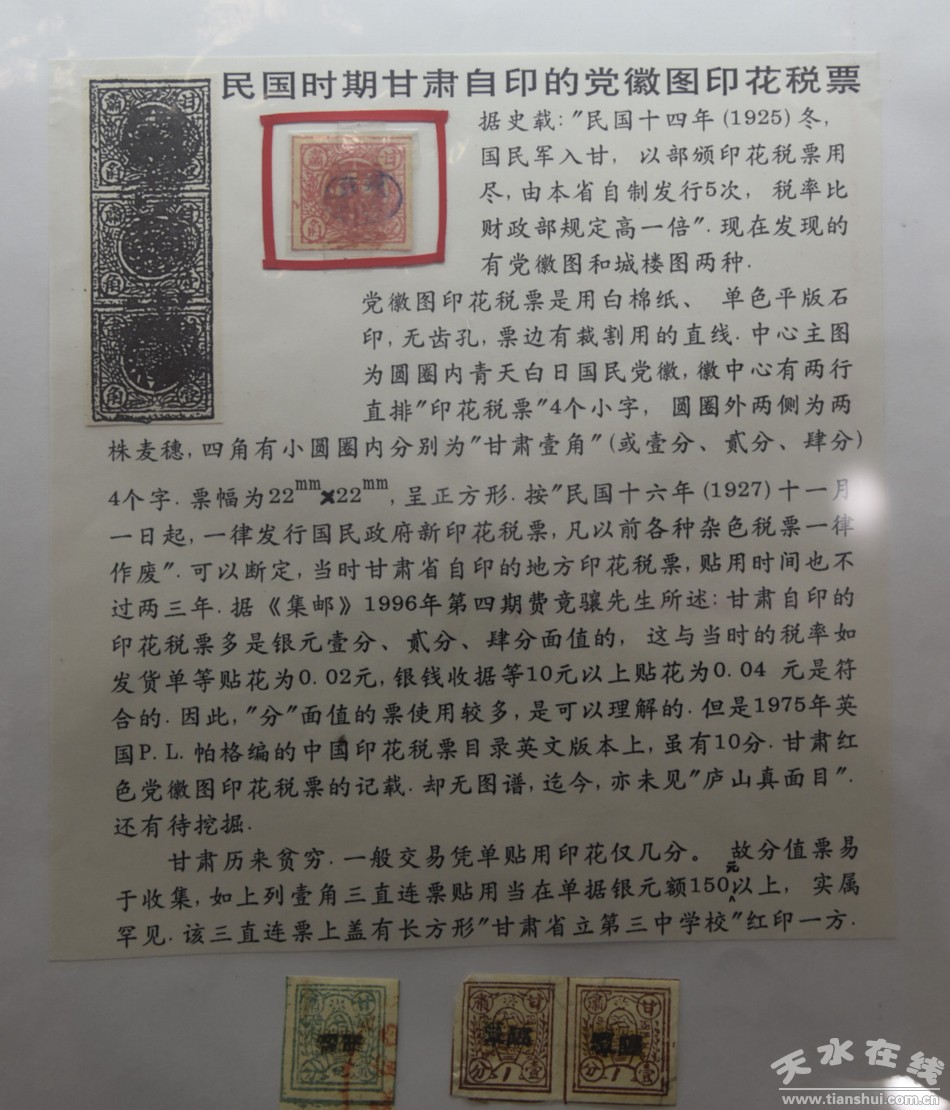 民国时期甘肃自印的党徽图印花税票
据史载:"民国十四年(1925)冬,
国民军入甘, 以部颁印花税票用
尽,由本省自制发行5次, 税率比
财政部规定高一倍".现在发现的
有党徽图和城楼图两种.
党徽图印花税票是用白棉纸、 单色平版石
印,无齿孔,票边有裁割用的直线.中心主图
为圆圈内青天白日国民党徽,徽中心有两行
直排"印花税票"4个小字, 圆圈外两侧为两
株麦穗,四角有小圆圈内分别为"甘肃壹角"(或壹分、贰分、肆分)
4个字.票幅为22mm×22mm,呈正方形.按"民国十六年(1927)十一月
一日起,一律发行国民政府新印花税票,凡以前各种杂色税票一律
作废".可以断定,当时甘肃省自印的地方印花税票,贴用时间也不
过两三年.据《集邮》1996年第四期费竞骧先生所述:甘肃自印的
印花税票多是银元壹分、贰分、肆分面值的, 这与当时的税率如
发货单等贴花为0.02元,银钱收据等10元以上贴花为0.04 元是符
合的.因此,"分"面值的票使用较多,是可以理解的.但是1975年英
国P.L.帕格编的中国印花税票目录英文版本上,虽有10分.甘肃红
色党徽图印花税票的记载.却无图谱,迄今,亦未见"庐山真面目".
还有待挖掘.
甘肃历来贫穷.一般交易凭单贴用印花仅几分。 故分值票易
于收集,如上列壹角三直连票贴用当在单据银元额150元以上, 实属
罕见.该三直连票上盖有长方形"甘肃省立第三中学校"红印一方.
肅 甘
角 壹
肅 甘
分 1 壹
肅 甘
分 1 壹
天水在线
www.tianshui.com.cn